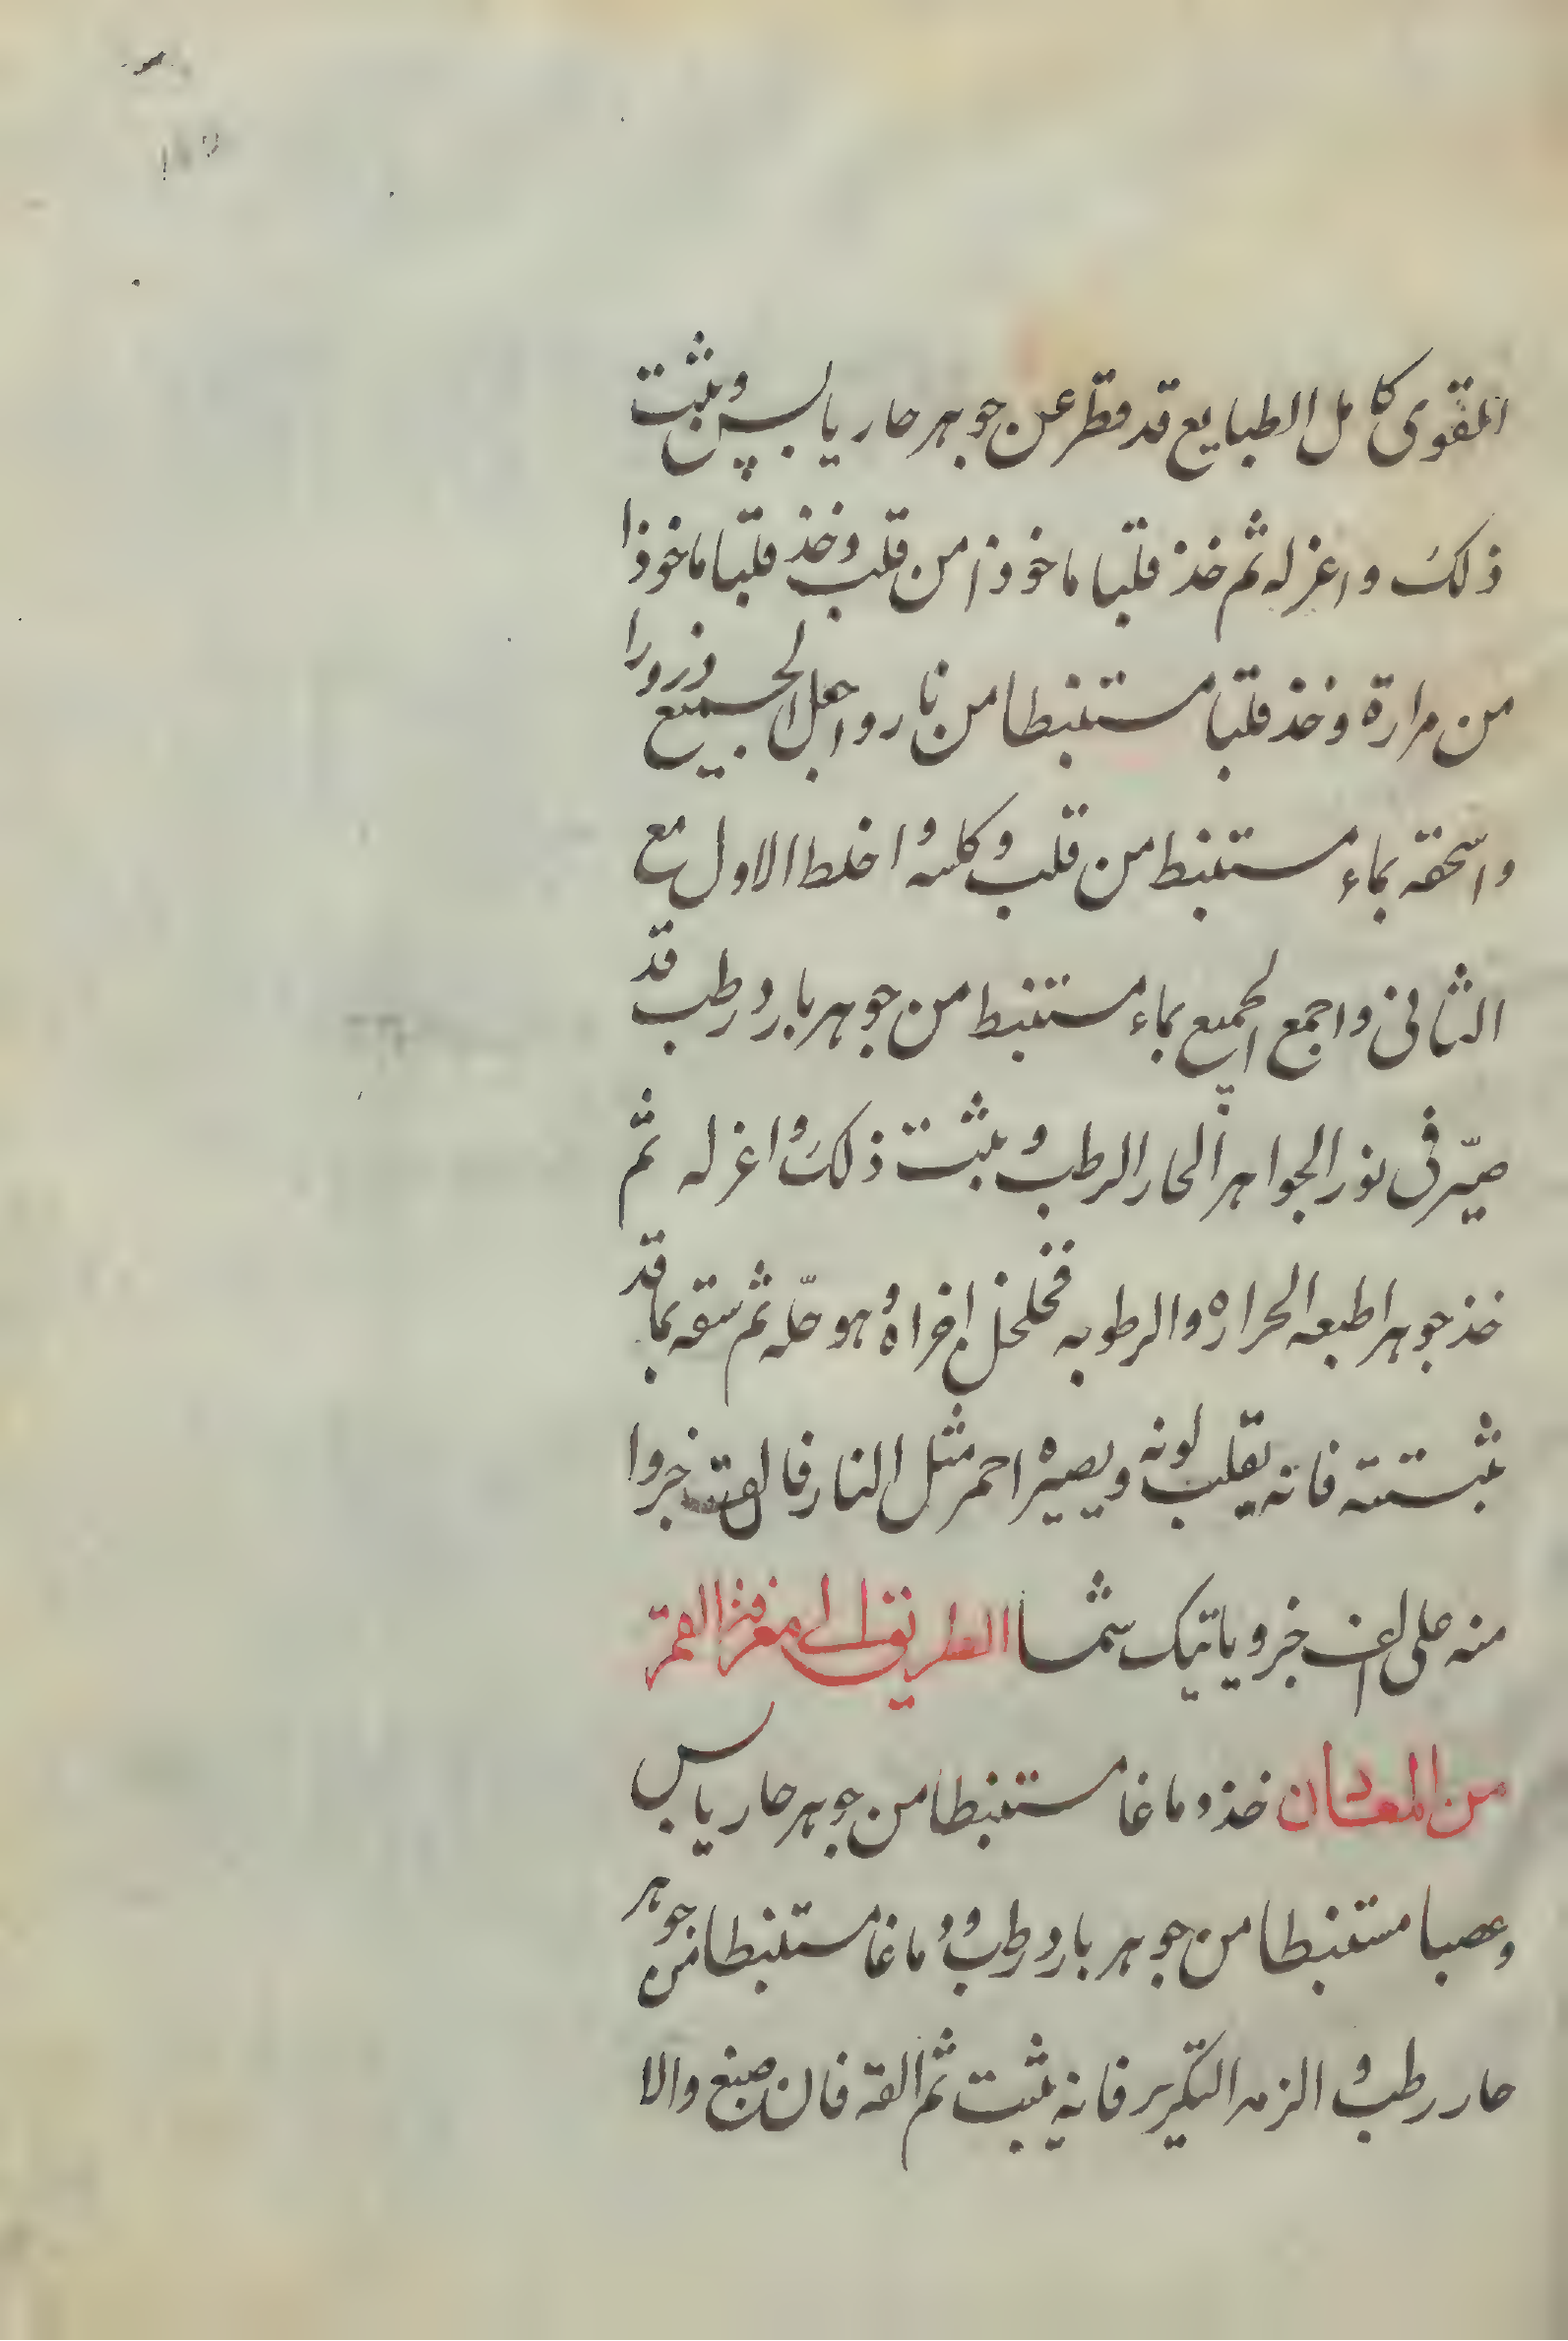 المقوى كامل الطبايع قد قطر عن جوهر حار يابس وثبت
ذلك واعزله ثم خذ قلبا ماخوذا من قلب وخذ قلبا ماخوذا
من مرارة وخذ قلبا مستنبطا من نار واجعل الجميع ذرورا
واسحقه بماء مستنبط من قلب وكلسه واخلط الاول مع
الثانى واجمع الجميع بماء مستنبط من جوهر بارد رطب قد
صيّر فى نور الجواهر الحار الرطب وثبت ذلك واعزله ثم
خذ جوهرا طبعه الحراره والرطوبه فخلخل اجزاه وهو حلّه ثم سقه بما قد
ثبتته فانه يقلب لونه ويصيره احمر مثل النار فالق جزوا
منه على الف جزو ياتيك شمسا الطريق الى معرفة القمر
من المعادن خذ دماغا مستنبطا من جوهر حار يابس
وعصبا مستنبطا من جوهر بارد رطب ودماغا مستنبطا من جوهر
حار رطب والزمه التكرير فانه يثبت ثم القه فان صبغ والا